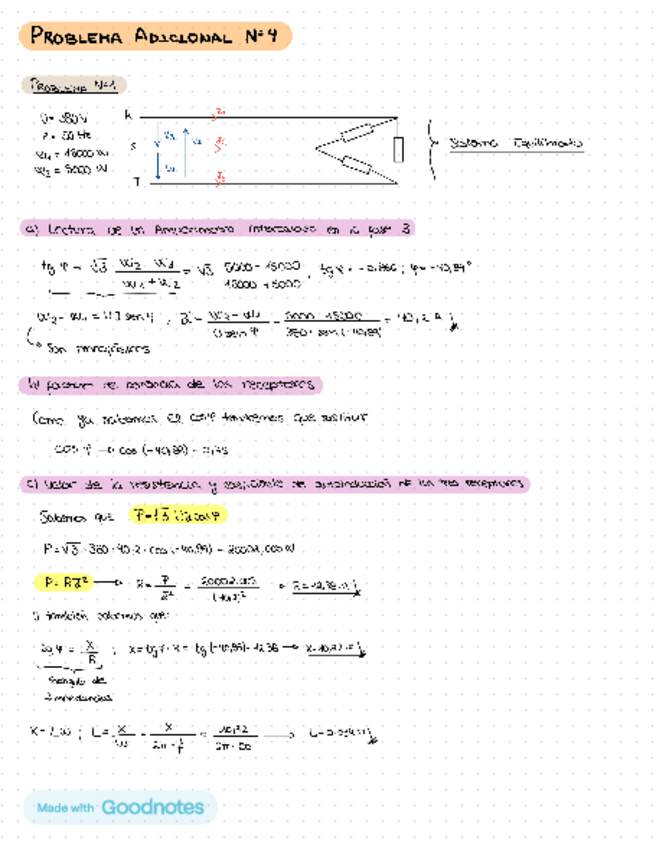 PROBLEMA ADICIONAL Nº4
PROBLEMA Nº1
U = 380 V
F = 50 Hz
W1 = 15000 W
W2 = 5000 W
R
S
T
Sistema Equilibrado
a) Lectura de un Amperímetro intercalado en la fase 3
tg φ = √3 W2 - W1 / W1 + W2 = √3 5000 - 15000 / 15000 + 5000 ; tg φ = -0,866 ; φ = -40,89°
W2 - W1 = U I sen φ ; I = W2 - W1 / U sen φ = 5000 - 15000 / 380 · sen (-40,89) = 40,2 A
Son monofásicos
b) factor de potencia de los receptores
Como ya sabemos el cos φ tendremos que sustituir
cos φ → cos (-40,89) = 0,75
c) Valor de la resistencia y coeficiente de autoinducción de los tres receptores
Sabemos que P = √3 U I cos φ
P = √3 · 380 · 40,2 · cos (-40,89) =
P = R I² → R = P / I² =
Y también sabemos que:
tg φ = X / R ; X = tg φ · R = tg (-40,89) · 12,38 →
triángulo de
impedancias
X = L ω ; L = X / ω = X / 2π · f =
Made with Goodnotes